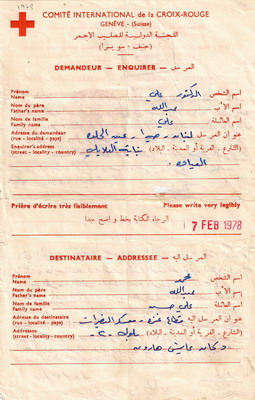 COMITÉ INTERNATIONAL de la CROIX-ROUGE
GENÈVE - (Suisse)
اللجنة الدولية للصليب الاحمر
(جنيف - سويسرا)
DEMANDEUR — ENQUIRER — المرسل
Prénom
Name
الدكتور علي
اسم الشخص
Nom du père
Father's name
عبدالله
اسم الأب
Nom de famille
Family name
علي
اسم العائلة
Adresse du demandeur
(rue - localité - pays)
لبنان - صيدا - عين الحلوة
عنوان المرسل
Enquirer's address
(street - locality - country)
بناية
(الشارع - القرية أو المدينة - البلاد)
Prière d'écrire très lisiblement
Please write very legibly
الرجاء الكتابة بخط واضح جدا
7 FEB 1978
DESTINATAIRE — ADDRESSEE — المرسل اليه
Prénom
Name
محمد
اسم الشخص
Nom du père
Father's name
عبدالله
اسم الأب
Nom de famille
Family name
علي حسين
اسم العائلة
Adresse de destinataire
(rue - localité - pays)
قطاع غزة - معسكر النصيرات
عنوان المرسل اليه
Addressee
(street - locality - country)
بلوك -
(الشارع - القرية أو المدينة - البلاد)
هارون